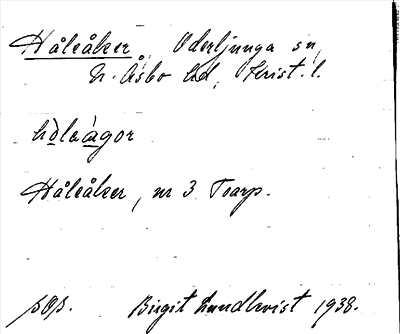 Håleåker, Oderljunga sn,
N. Åsbo hd, Krist. l.
hòleàgor
Håleåker, nr 3 Toarp.
pop. Birgit Lundkvist 1938.